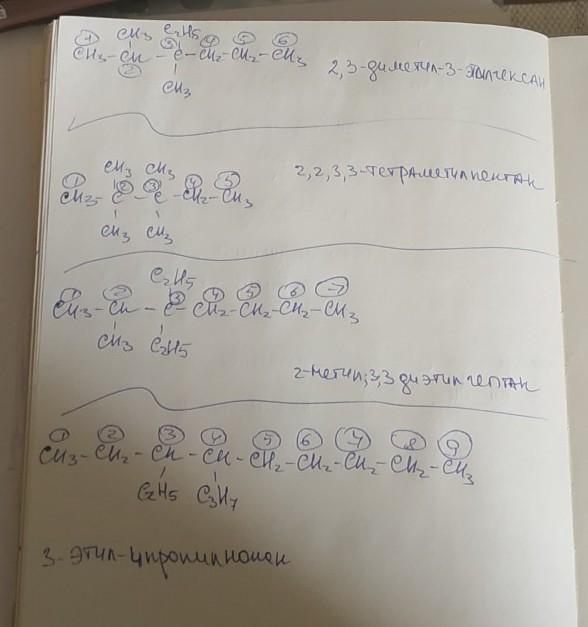 CH3 C2H5
① ③ ④ ⑤ ⑥
CH3-CH-C-CH2-CH2-CH3
②
CH3
2,3-диметил-3-этилгексан
CH3 CH3
① ② ③ ④ ⑤
CH3-C-C-CH2-CH3
CH3 CH3
2,2,3,3-тетраметилпентан
C2H5
① ② ③ ④ ⑤ ⑥ ⑦
CH3-CH-C-CH2-CH2-CH2-CH3
CH3 C2H5
2-метил;3,3диэтилгептан
① ② ③ ④ ⑤ ⑥ ⑦ ⑧ ⑨
CH3-CH2-CH-CH-CH2-CH2-CH2-CH2-CH3
C2H5 C3H7
3-этил-4пропилнонан